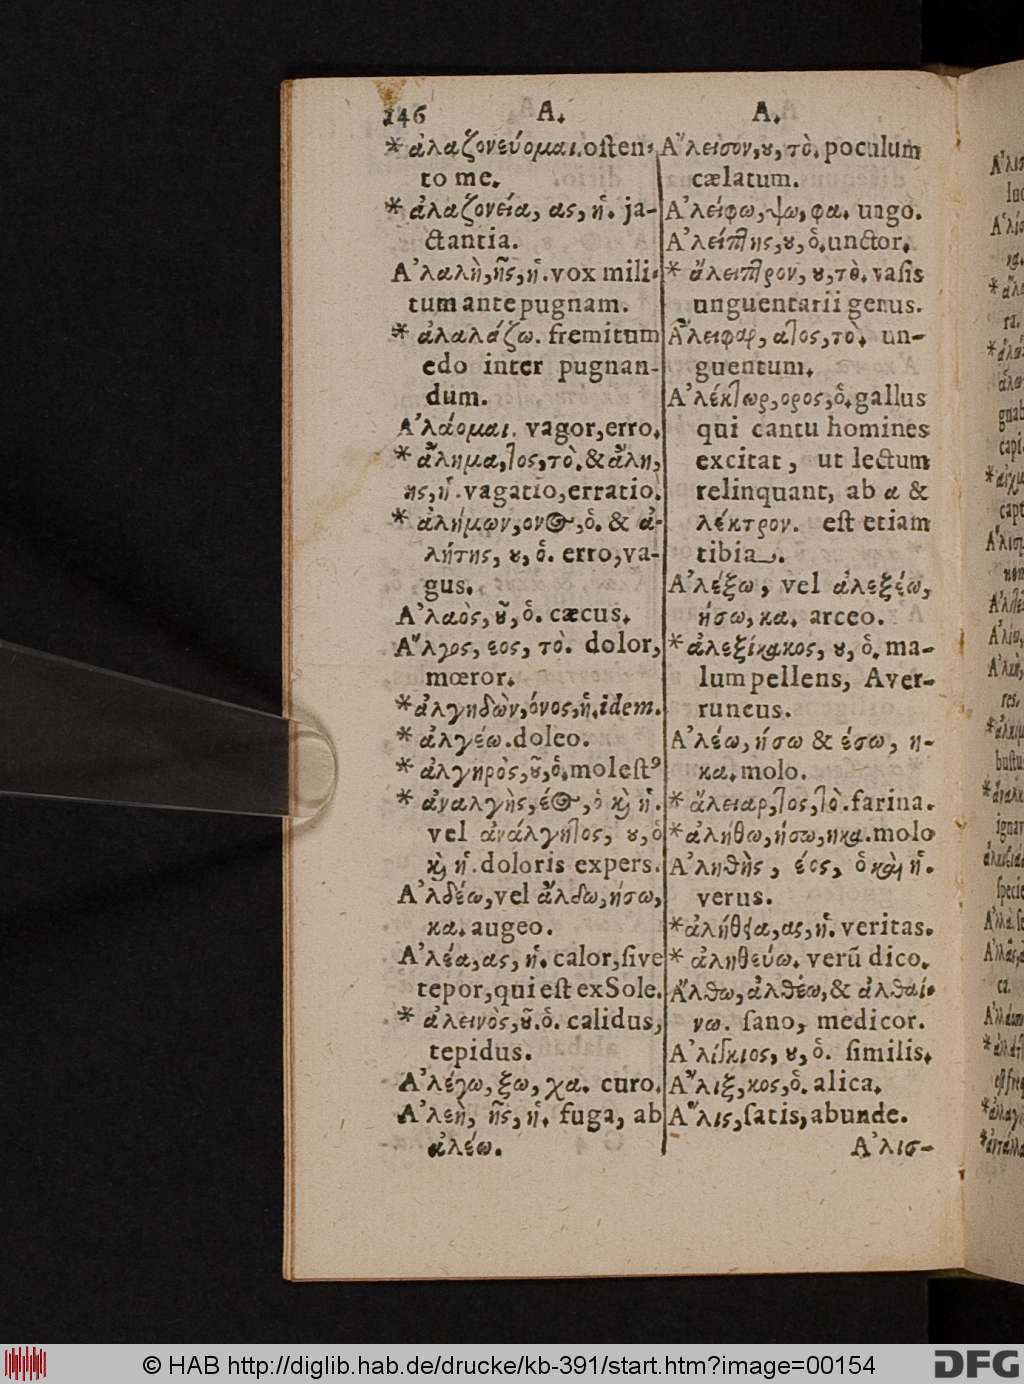 146 A. A.
* ἀλαζονεύομαι. osten-
to me.
* ἀλαζονεία, ας, ἡ. ja-
ctantia.
Α᾿λαλὴ, ῆς, ἡ. vox mili-
tum ante pugnam.
* ἀλαλάζω. fremitum
edo inter pugnan-
dum.
Α᾿λάομαι. vagor, erro.
* ἄλημα, τος, τὸ. & ἄλη,
ης, ἡ. vagatio, erratio.
* ἀλήμων, ονος, ὁ. & ἀ-
λήτης, ου, ὁ. erro, va-
gus.
Α᾿λαὸς, οῦ, ὁ. cæcus.
Α῎λγος, εος, τὸ. dolor,
mœror.
* ἀλγηδὼν, όνος, ἡ. idem.
* ἀλγέω. doleo.
* ἀλγηρὸς, οῦ, ὁ. molestꝰ
* ἀναλγὴς, έος, ὁ καὶ ἡ.
vel ἀνάλγητος, ου, ὁ
καὶ ἡ. doloris expers.
Α᾿λδέω, vel ἄλδω, ήσω,
κα. augeo.
Α᾿λέα, ας, ἡ. calor, sive
tepor, qui est ex Sole.
* ἀλεινὸς, οῦ. ὁ. calidus,
tepidus.
Α᾿λέγω, ξω, χα. curo.
Α᾿λεὴ, ῆς, ἡ. fuga, ab
ἀλέω.
Α῎λεισον, ου, τὸ. poculum
cælatum.
Α᾿λείφω, ψω, φα. ungo.
Α᾿λείπτης, ου, ὁ. unctor.
* ἄλειπτρον, ου, τὸ. vasis
unguentarii genus.
Α῎λειφαρ, ατος, τὸ. un-
guentum.
Α᾿λέκτωρ, ορος, ὁ. gallus
qui cantu homines
excitat, ut lectum
relinquant, ab α &
λέκτρον. est etiam
tibia.
Α᾿λέξω, vel ἀλεξέω,
ήσω, κα. arceo.
* ἀλεξίκακος, ου, ὁ. ma-
lum pellens, Aver-
runcus.
Α᾿λέω, ήσω & έσω, η-
κα. molo.
* ἄλειαρ, τος, τὸ. farina.
* ἀλήθω, ήσω, ηκα. molo
Α᾿ληθὴς, έος, ὁ καὶ ἡ.
verus.
* ἀλήθεια, ας, ἡ. veritas.
* ἀληθεύω. verũ dico.
Α῎λθω, ἀλθέω, & ἀλθαί-
νω. sano, medicor.
Α᾿λίγκιος, ου, ὁ. similis.
Α῎λιξ, κος, ὁ. alica.
Α῎λις, satis, abunde.
Α᾿λισ-
© HAB http://diglib.hab.de/drucke/kb-391/start.htm?image=00154
DFG